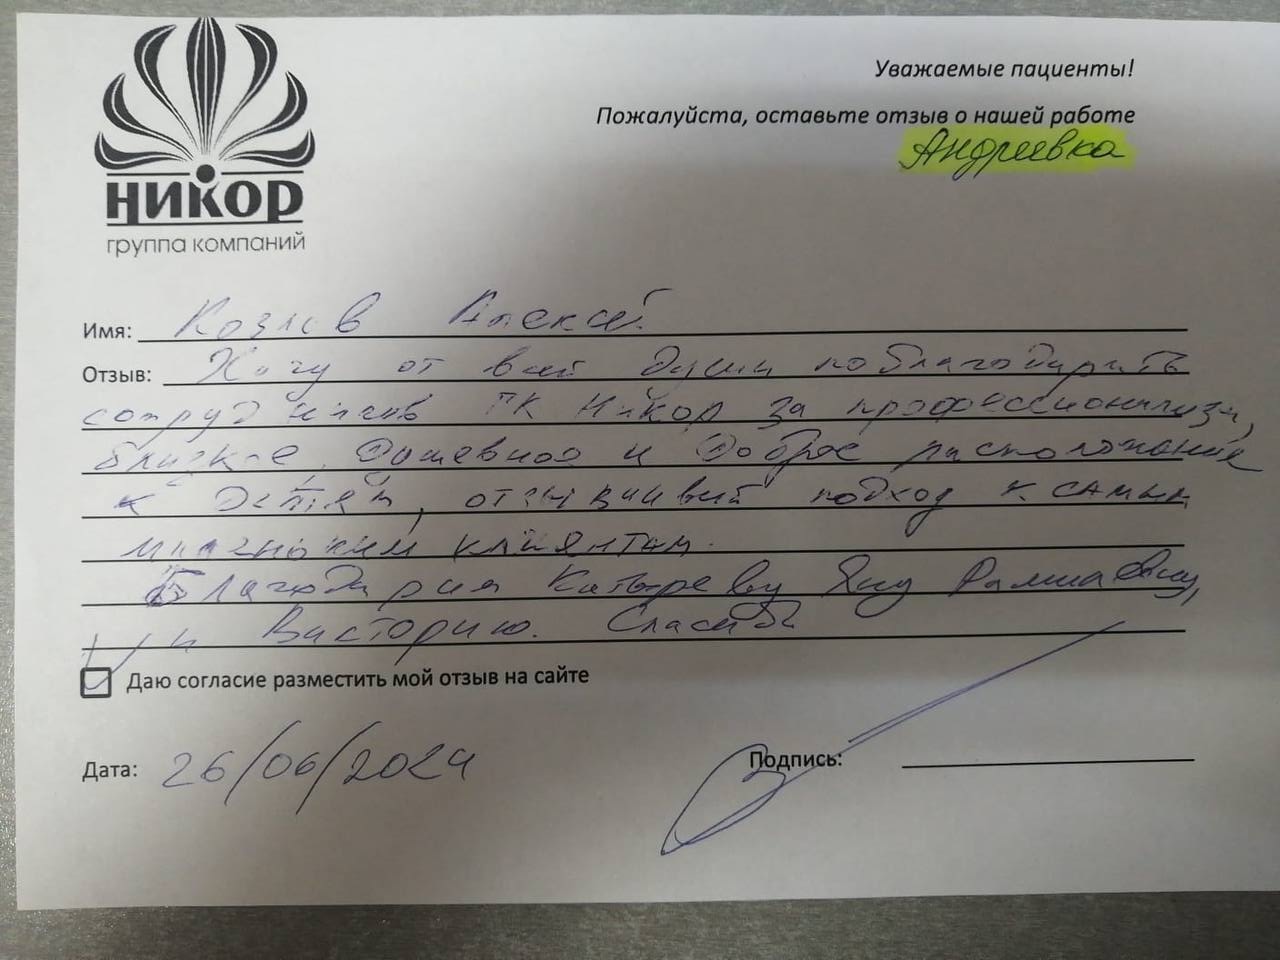 НИКОР
группа компаний
Уважаемые пациенты!
Пожалуйста, оставьте отзыв о нашей работе
Андреевка
Имя: Козлов Алексей
Отзыв: Хочу от всей души поблагодарить
сотрудников ГК Никор за профессионализм,
близкое, душевное и доброе расположение
к детям, отзывчивый подход к самым
маленьким клиентам.
Благодарим Катыреву Яну
и Викторию. Спасибо
Даю согласие разместить мой отзыв на сайте
Дата: 26/06/2024
Подпись: